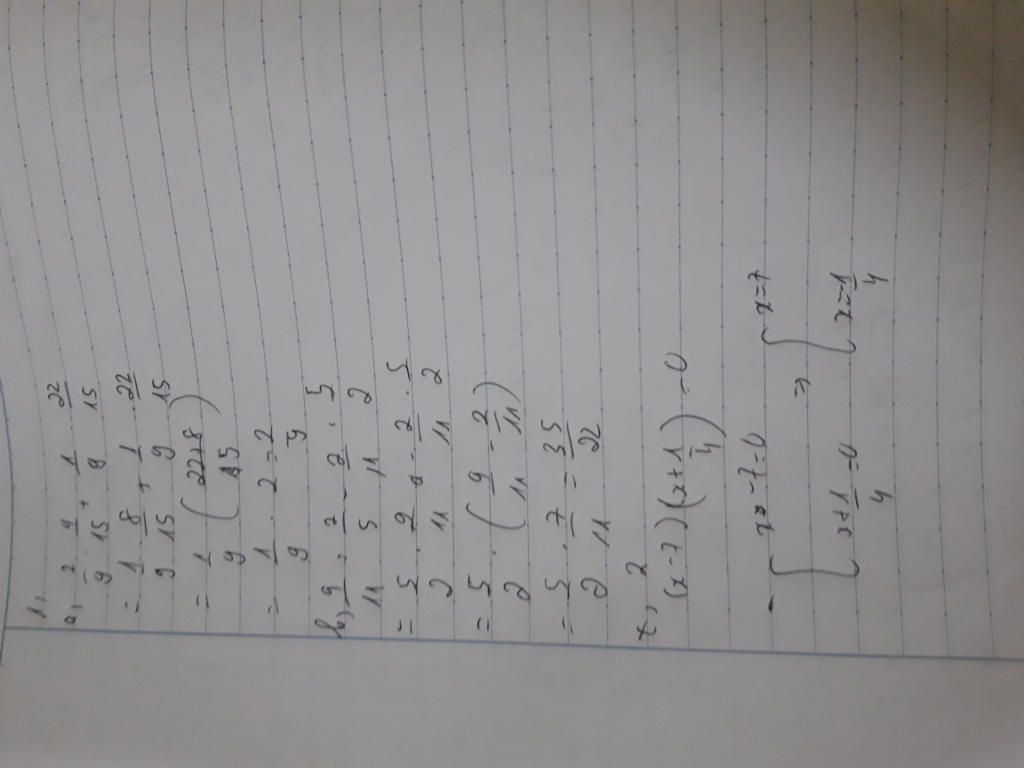 1,
a, 2/9 . 4/15 + 1/9 . 22/15
= 1/9 . 8/15 + 1/9 . 22/15
= 1/9 (22+8/15)
= 1/9 . 2 = 2/9
b, 9/11 : 2/5 - 2/11 . 5/2
= 5/2 . 9/11 - 2/11 . 5/2
= 5/2 . (9/11 - 2/11)
= 5/2 . 7/11 = 35/22
2
(x-7)(x+1/4)=0
x-7=0 x=7
=>
x+1/4=0 x=-1/4